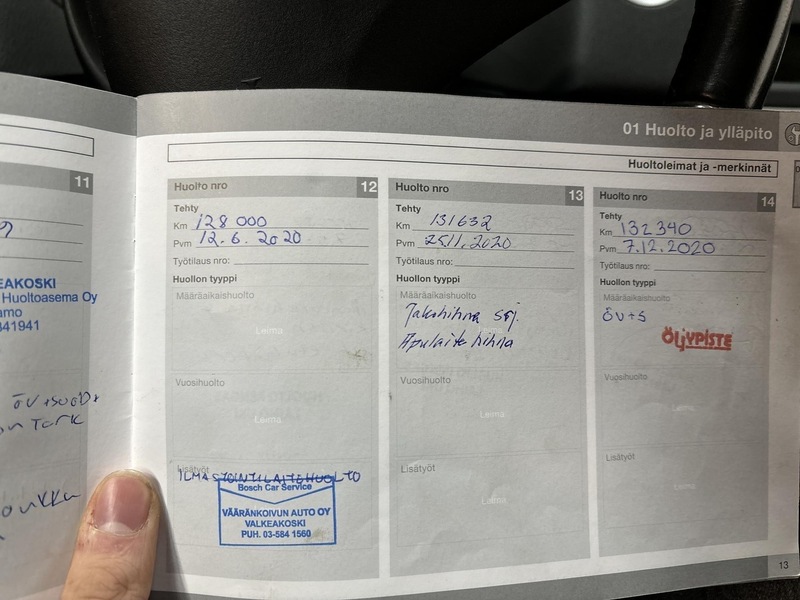 01 Huolto ja ylläpito
Huoltoleimat ja -merkinnät
11
EAKOSKI
Huoltoasema Oy
amo
841941
ÖV+SUOD+
Huolto nro 12
Tehty
Km 128 000
Pvm 12.6.2020
Työtilaus nro:
Huollon tyyppi
Määräaikaishuolto
Leima
Vuosihuolto
Leima
Lisätyöt
ILMASTOINTILAITEHUOLTO
Bosch Car Service
VÄÄRÄNKOIVUN AUTO OY
VALKEAKOSKI
PUH. 03-584 1560
Huolto nro 13
Tehty
Km 131632
Pvm 25.11.2020
Työtilaus nro:
Huollon tyyppi
Määräaikaishuolto
Jakohihna srj.
Leima
Apulaitehihna
Vuosihuolto
Leima
Lisätyöt
Leima
Huolto nro 14
Tehty
Km 132340
Pvm 7.12.2020
Työtilaus nro:
Huollon tyyppi
Määräaikaishuolto
ÖV+S
ÖljYPISTE
Vuosihuolto
Leima
Lisätyöt
Leima
13